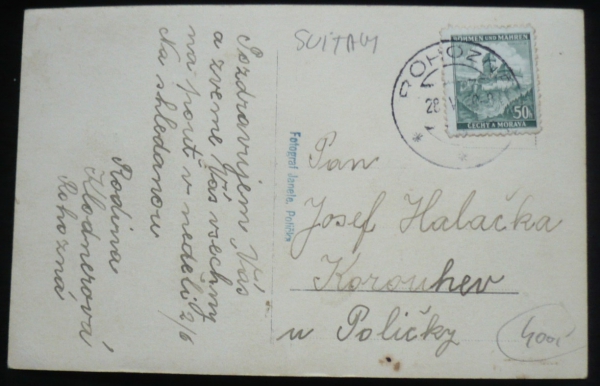 Pozdravujem Vás
a zveme Vás všechny
na pouť v neděli 2/6
Na shledanou
Rodina
Klodnerová
Rohozná
SVITAVY
Fotograf Janele, Polička
ROHOZNÁ
28
BÖHMEN UND MÄHREN
50
ČECHY A MORAVA
Pan
Josef Halačka
Korouhev
u Poličky